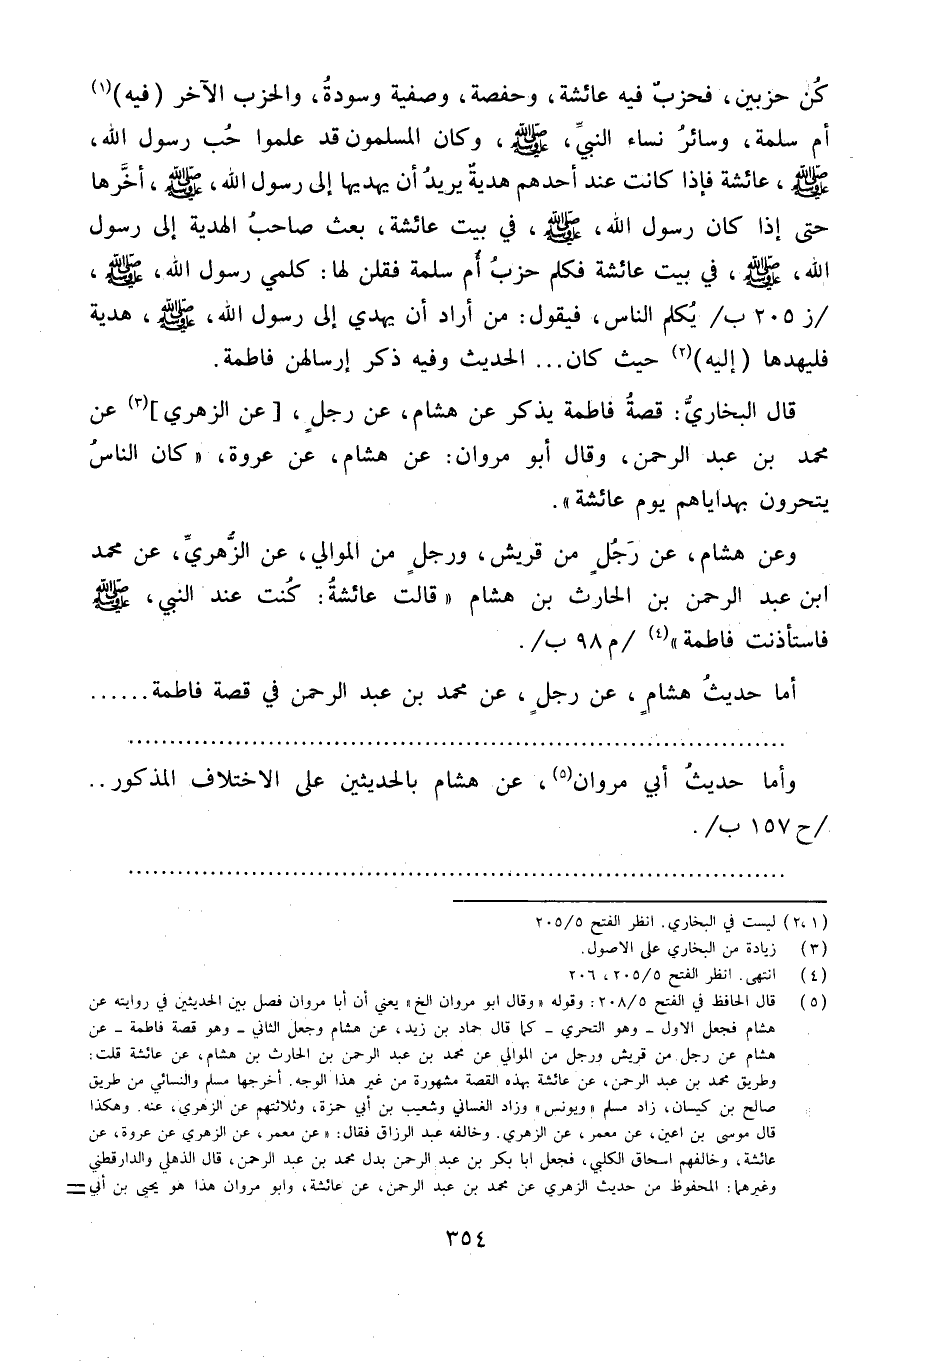 كُن حزبين، فحزبٌ فيه عائشة، وحفصة، وصفية وسودةُ، والحزب الآخر (فيه)(١)
أم سلمة، وسائرُ نساء النبيِّ، ﷺ، وكان المسلمون قد علموا حُب رسول الله،
ﷺ، عائشة فإذا كانت عند أحدهم هديةٌ يريدُ أن يهديها إلى رسول الله، ﷺ، أخَّرها
حتى إذا كان رسول الله، ﷺ، في بيت عائشة، بعث صاحبُ الهدية إلى رسول
الله، ﷺ، في بيت عائشة فكلم حزبُ أُم سلمة فقلن لها: كلمي رسول الله، ﷺ،
/ز ٢٠٥ ب/ يُكلم الناس، فيقول: من أراد أن يهدي إلى رسول الله، ﷺ، هدية
فليهدها (إليه)(٢) حيث كان... الحديث وفيه ذكر إرسالهن فاطمة.
قال البخاريُّ: قصةُ فاطمة يذكر عن هشام، عن رجلٍ، [عن الزهري](٣) عن
محمد بن عبد الرحمن، وقال أبو مروان: عن هشام، عن عروة، «كان الناسُ
يتحرون بهداياهم يوم عائشة».
وعن هشام، عن رَجُلٍ من قريش، ورجلٍ من الموالي، عن الزُّهريِّ، عن محمد
ابن عبد الرحمن بن الحارث بن هشام «قالت عائشةُ: كُنت عند النبي، ﷺ
فاستأذنت فاطمة»(٤) /م ٩٨ ب/.
أما حديثُ هشامٍ، عن رجلٍ، عن محمد بن عبد الرحمن في قصة فاطمة......
................................................................................
وأما حديثُ أبي مروان(٥)، عن هشام بالحديثين على الاختلاف المذكور..
/ح ١٥٧ ب/.
................................................................................
(١،٢) ليست في البخاري. انظر الفتح ٢٠٥/٥
(٣) زيادة من البخاري على الاصول.
(٤) انتهى. انظر الفتح ٢٠٥/٥، ٢٠٦
(٥) قال الحافظ في الفتح ٢٠٨/٥: وقوله «وقال ابو مروان الخ» يعني أن أبا مروان فصل بين الحديثين في روايته عن
هشام فجعل الاول - وهو التحري - كما قال حماد بن زيد، عن هشام وجعل الثاني - وهو قصة فاطمة - عن
هشام عن رجل من قريش ورجل من الموالي عن محمد بن عبد الرحمن بن الحارث بن هشام، عن عائشة قلت:
وطريق محمد بن عبد الرحمن، عن عائشة بهذه القصة مشهورة من غير هذا الوجه. أخرجها مسلم والنسائي من طريق
صالح بن كيسان، زاد مسلم «ويونس» وزاد الغساني وشعيب بن أبي حمزة، وثلاثتهم عن الزهري، عنه. وهكذا
قال موسى بن اعين، عن معمر، عن الزهري. وخالفه عبد الرزاق فقال: «عن معمر، عن الزهري عن عروة، عن
عائشة، وخالفهم اسحاق الكلبي، فجعل ابا بكر بن عبد الرحمن بدل محمد بن عبد الرحمن، قال الذهلي والدارقطني
وغيرهما: المحفوظ من حديث الزهري عن محمد بن عبد الرحمن، عن عائشة، وابو مروان هذا هو يحيى بن أبي =
٣٥٤